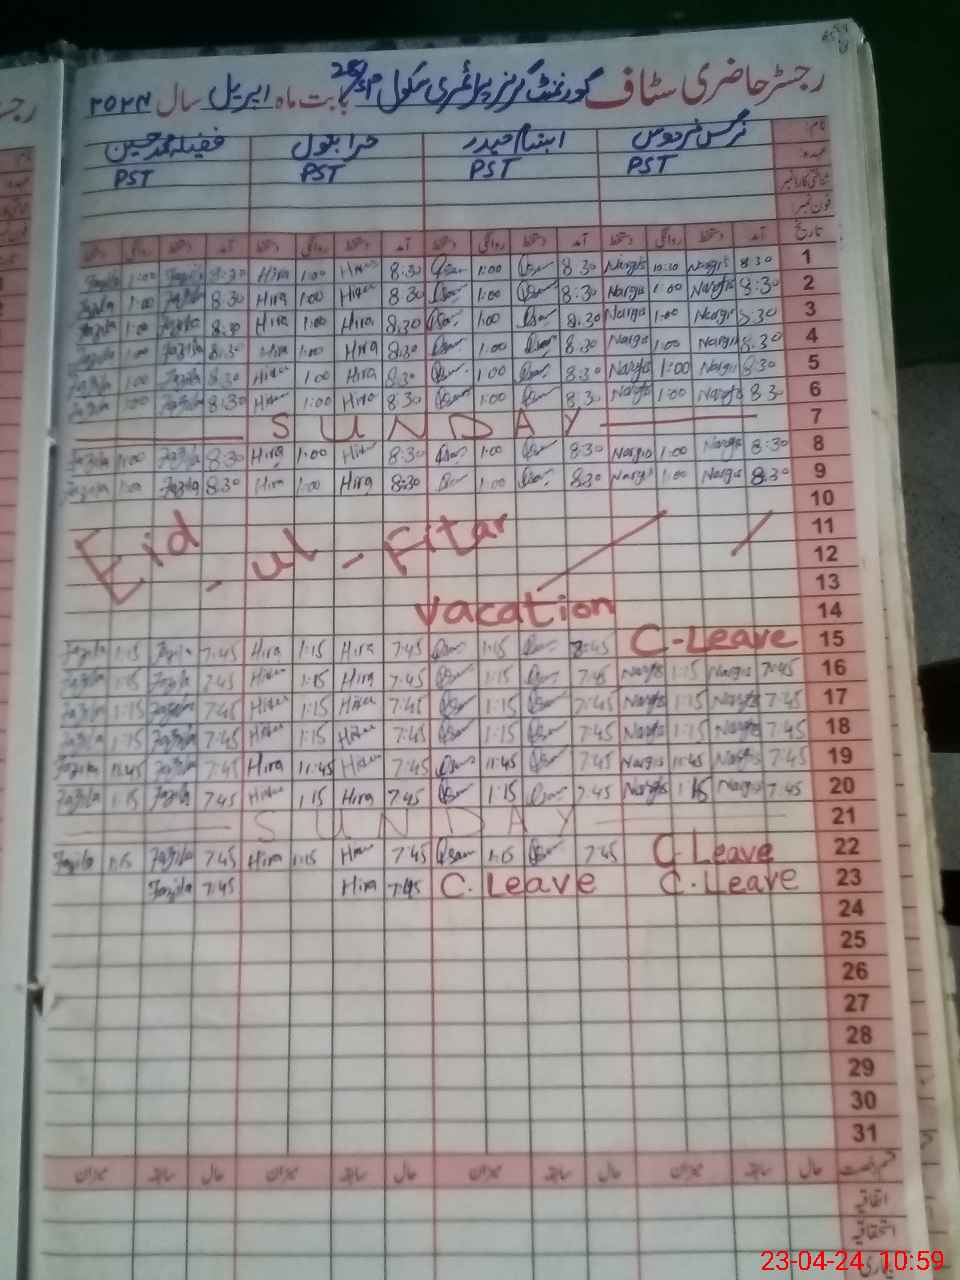 رجسٹر حاضری سٹاف گورنمنٹ گرلز پرائمری سکول بابت ماہ اپریل سال ۲۰۲۴
نام: نرگس فردوس حرا بتول
عہدہ: PST PST PST PST
شناختی کارڈ نمبر
فون نمبر
تاریخ آمد دستخط روانگی دستخط آمد دستخط روانگی دستخط آمد دستخط روانگی دستخط آمد دستخط روانگی دستخط
1 8:30 Nargis Nargis 8:30 1:00 8:30 Hira 1:00 Hira 8:30 Fazila 1:00 Fazila
2 8:30 Nargis 1:00 Nargis 8:30 1:00 8:30 Hira 1:00 Hira 8:30 Fazila 1:00 Fazila
3 8:30 Nargis 1:00 Nargis 8:30 1:00 8:30 Hira 1:00 Hira 8:30 Fazila 1:00 Fazila
4 8:30 Nargis 1:00 Nargis 8:30 1:00 8:30 Hira 1:00 Hira 8:30 Fazila 1:00 Fazila
5 8:30 Nargis 1:00 Nargis 8:30 1:00 8:30 Hira 1:00 Hira 8:30 Fazila 1:00 Fazila
6 8:30 Nargis 1:00 Nargis 8:30 1:00 8:30 Hira 1:00 Hira 8:30 Fazila 1:00 Fazila
7 SUNDAY
8 8:30 Nargis 1:00 Nargis 8:30 1:00 8:30 Hira 1:00 Hira 8:30 Fazila 1:00 Fazila
9 8:30 Nargis 1:00 Nargis 8:30 1:00 8:30 Hira 1:00 Hira 8:30 Fazila 1:00 Fazila
10
11 Eid - ul - Fitar
12
13
14 vacation
15 C-Leave 7:45 1:15 7:45 Hira 1:15 Hira 7:45 Fazila 1:15 Fazila
16 7:45 Nargis 1:15 Nargis 7:45 1:15 7:45 Hira 1:15 Hira 7:45 Fazila 1:15 Fazila
17 7:45 Nargis 1:15 Nargis 7:45 1:15 7:45 Hira 1:15 Hira 7:45 Fazila 1:15 Fazila
18 7:45 Nargis 1:15 Nargis 7:45 1:15 7:45 Hira 1:15 Hira 7:45 Fazila 1:15 Fazila
19 7:45 Nargis 11:45 Nargis 7:45 11:45 7:45 Hira 11:45 Hira 7:45 Fazila 11:45 Fazila
20 7:45 Nargis 1:15 Nargis 7:45 1:15 7:45 Hira 1:15 Hira 7:45 Fazila 1:15 Fazila
21 SUNDAY
22 C-Leave 7:45 1:15 7:45 Hira 1:15 Hira 7:45 Fazila 1:15 Fazila
23 C. Leave C. Leave 7:45 Hira 7:45 Fazila
24
25
26
27
28
29
30
31
قسم رخصت حال سابقہ میزان حال سابقہ میزان حال سابقہ میزان حال سابقہ میزان
اتفاقیہ
استحقاقیہ
بیماری
23-04-24 10:59